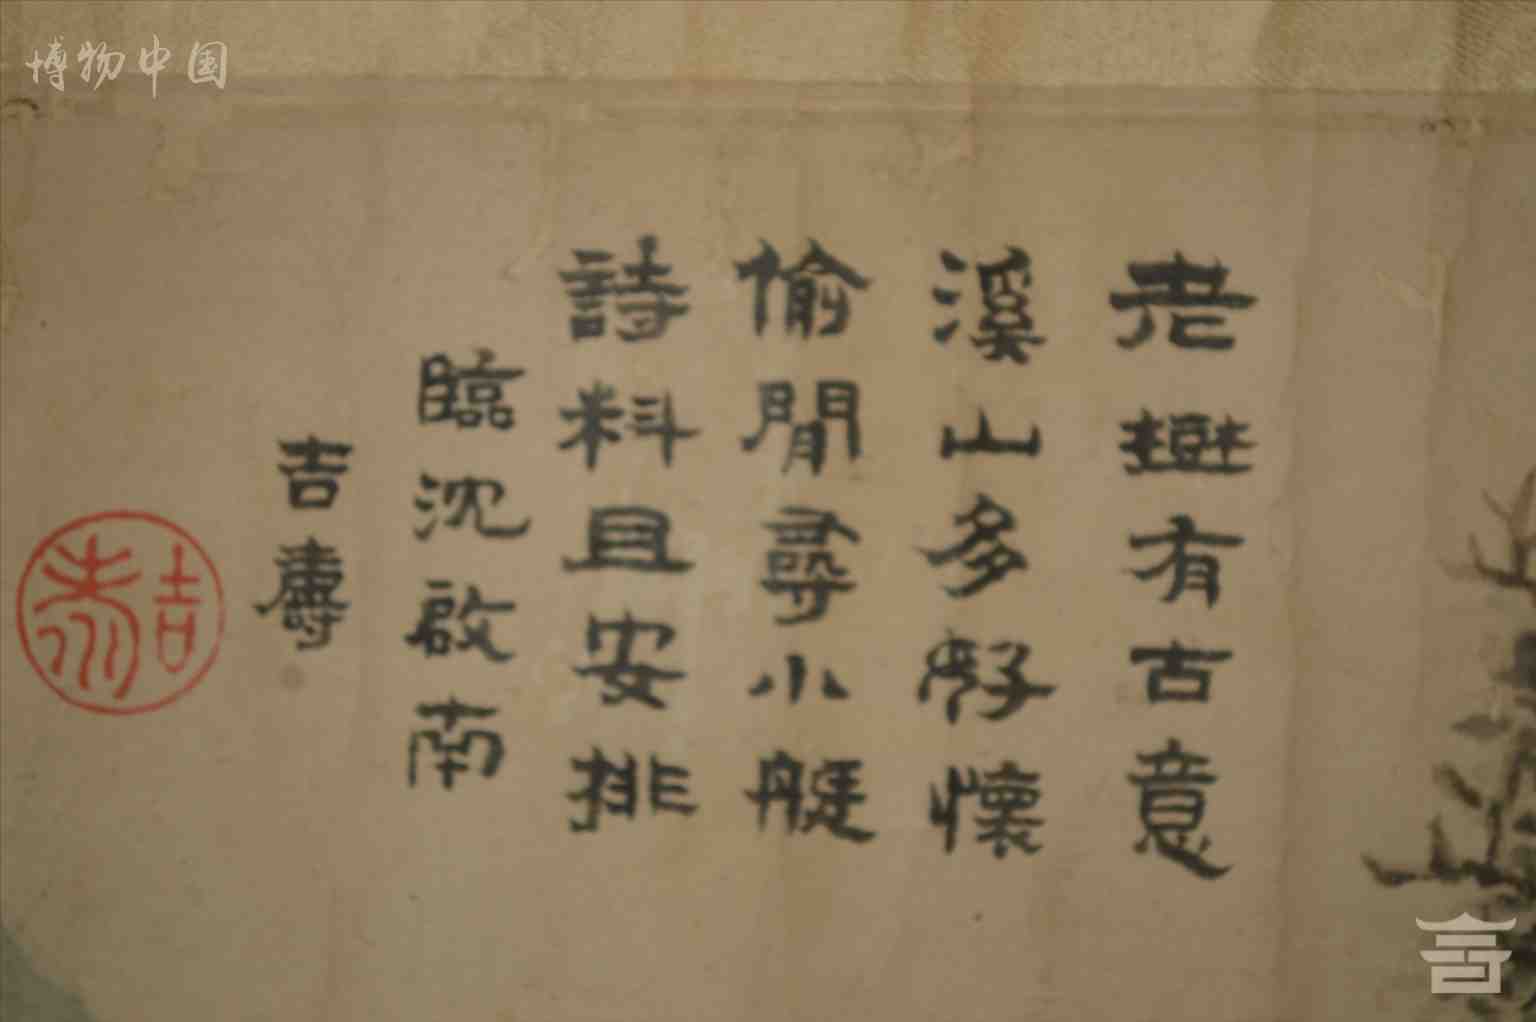 博物中国
老樹有古意
溪山多好懷
偷閒尋小艇
詩料且安排
臨沈啟南
吉壽
吉